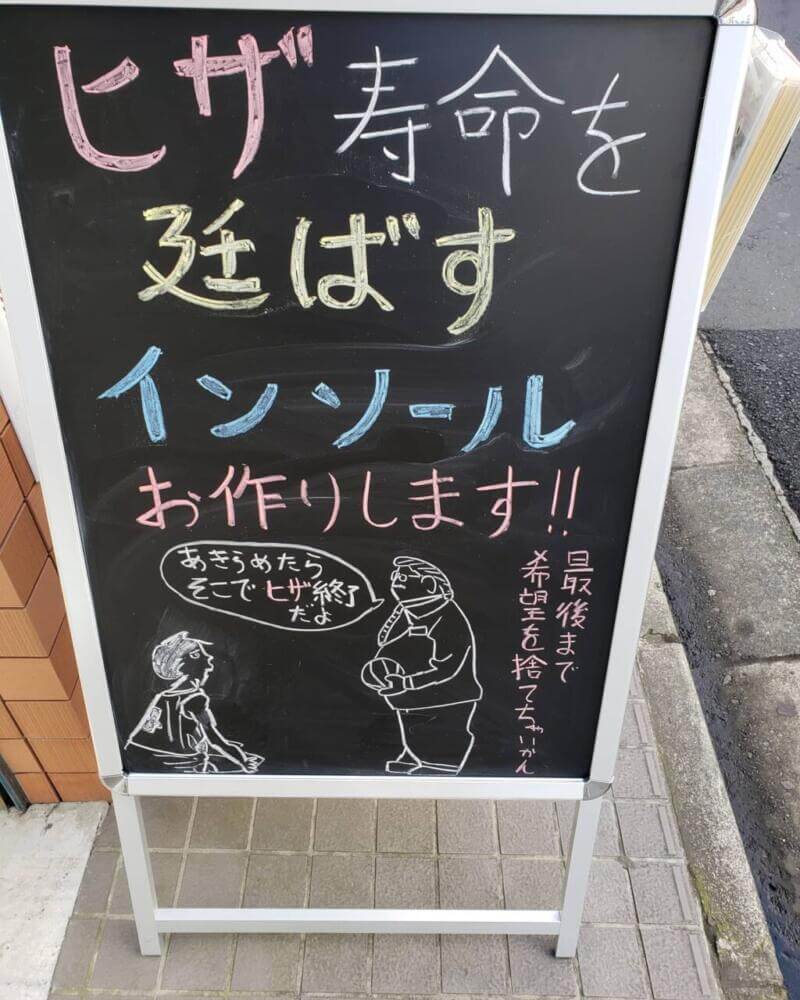 ヒザ寿命を
廷ばす
インソール
お作りします!!
あきらめたら
そこでヒザ終了
だよ
最後まで
希望を捨てちゃいかん